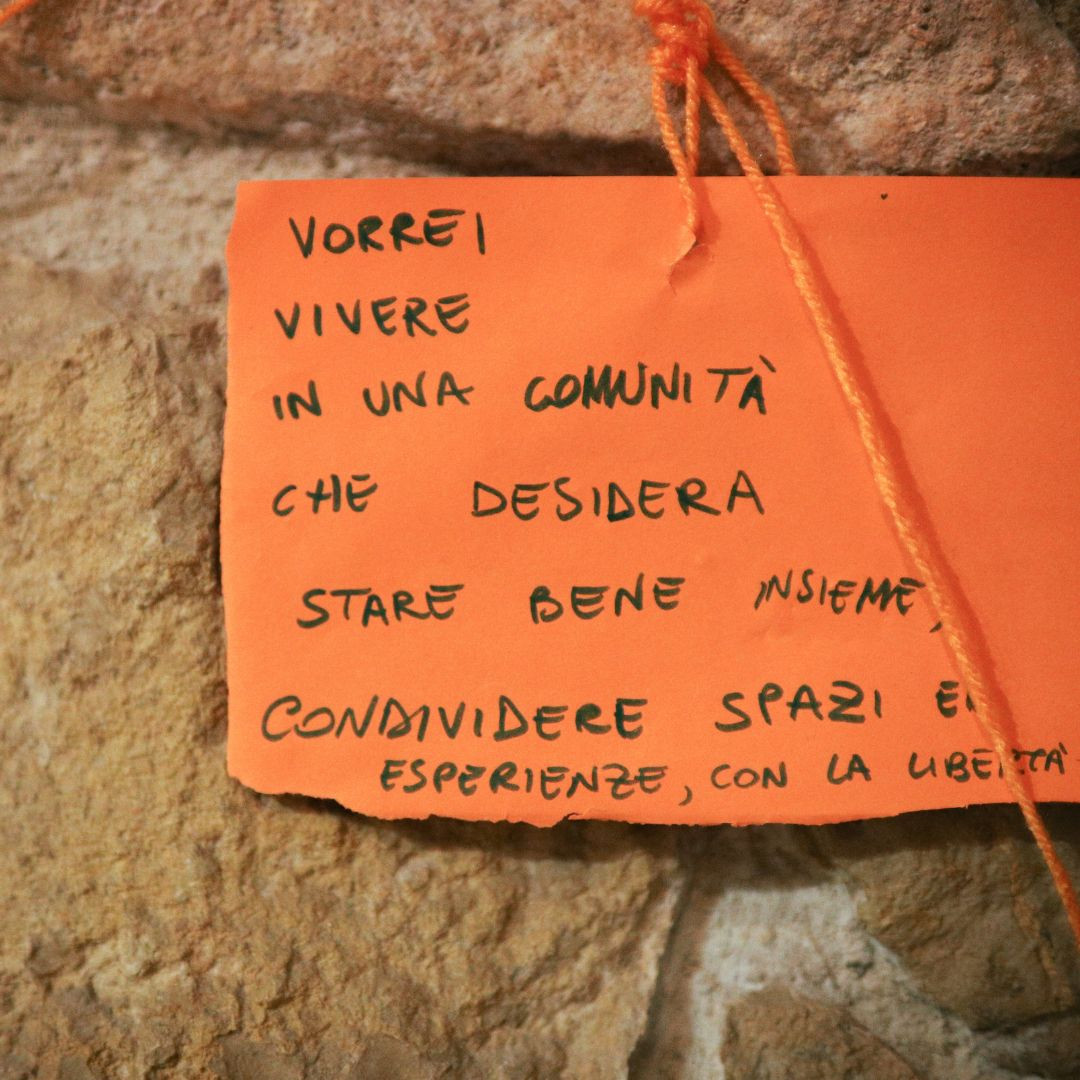 VORREI
VIVERE
IN UNA COMUNITÀ
CHE DESIDERA
STARE BENE INSIEME,
CONDIVIDERE SPAZI ED
ESPERIENZE, CON LA LIBERTÀ